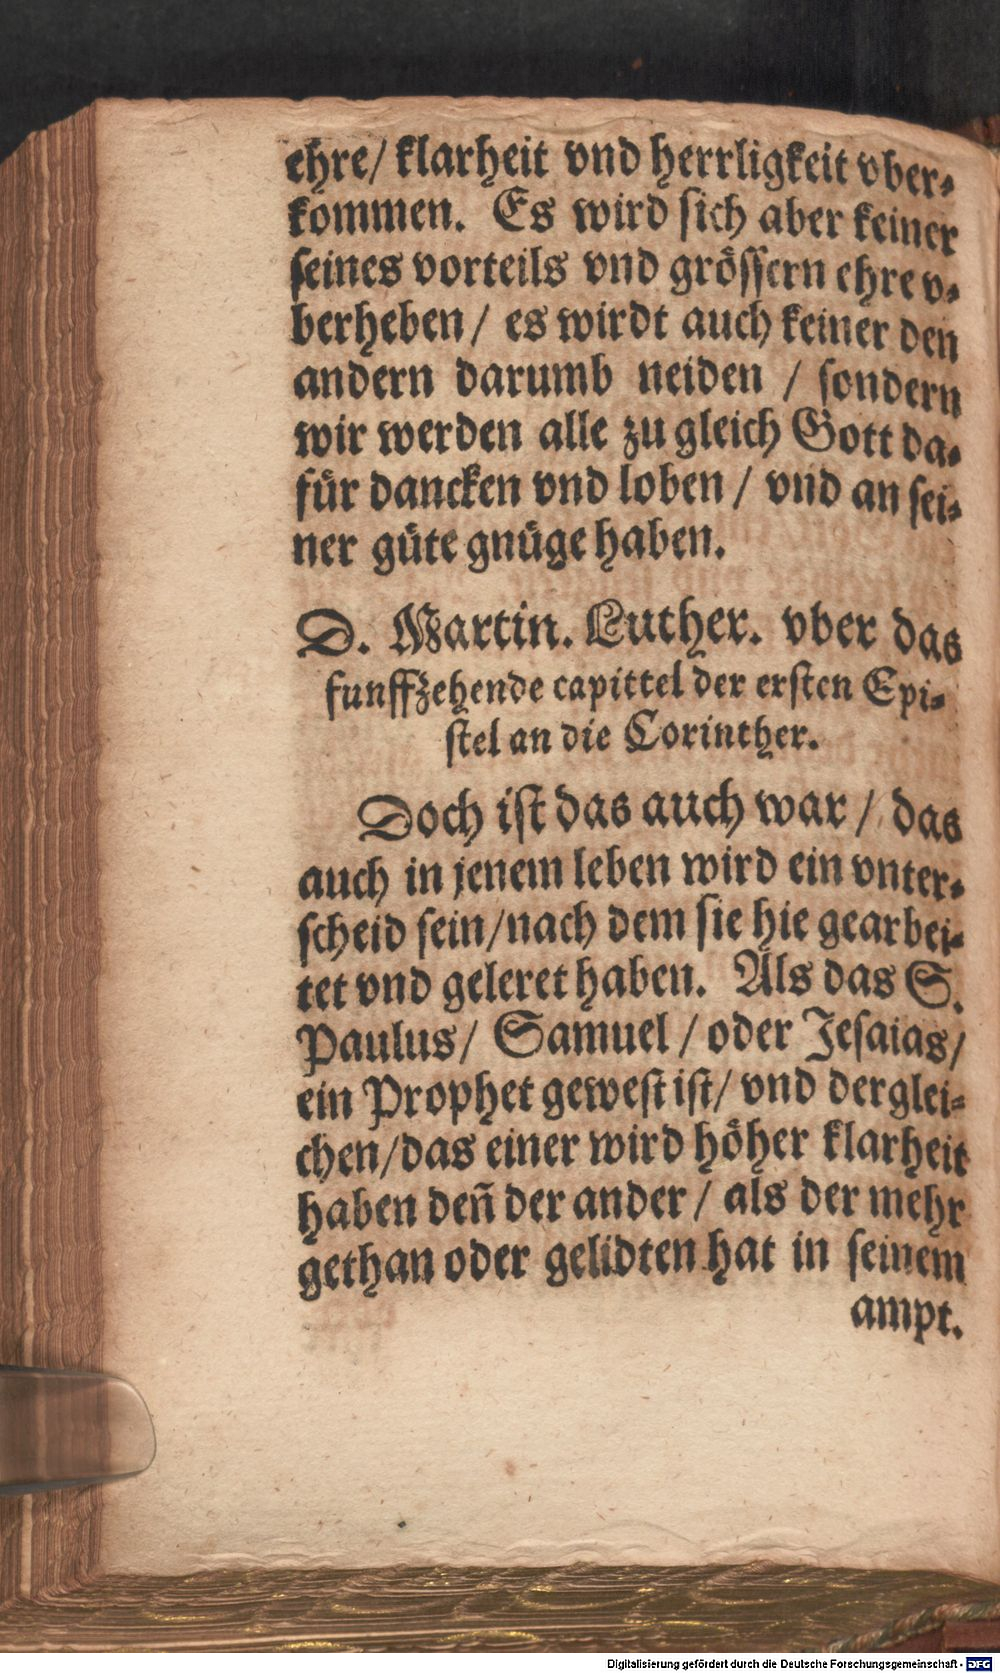 ehre/ klarheit vnd herrligkeit vber⸗
kommen. Es wird sich aber keiner
seines vorteils vnd grössern ehre v⸗
berheben/ es wirdt auch keiner den
andern darumb neiden / sondern
wir werden alle zu gleich Gott da⸗
für dancken vnd loben / vnd an sei⸗
ner güte gnüge haben.
D. Martin. Luther. vber das
funffzehende capittel der ersten Epi⸗
stel an die Corinther.
Doch ist das auch war / das
auch in jenem leben wird ein vnter⸗
scheid sein/nach dem sie hie gearbei⸗
tet vnd geleret haben. Als das S.
Paulus/ Samuel / oder Jesaias/
ein Prophet gewest ist/ vnd derglei⸗
chen/das einer wird höher klarheit
haben deñ der ander / als der mehr
gethan oder gelidten hat in seinem
ampt.
Digitalisierung gefördert durch die Deutsche Forschungsgemeinschaft - DFG